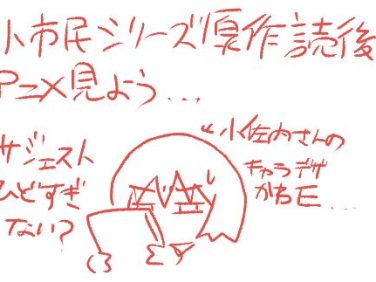 小市民シリーズ原作読後
アニメ見よう...
←小佐内さんの
キャラデザ
サジェスト
ひどすぎ
ない?